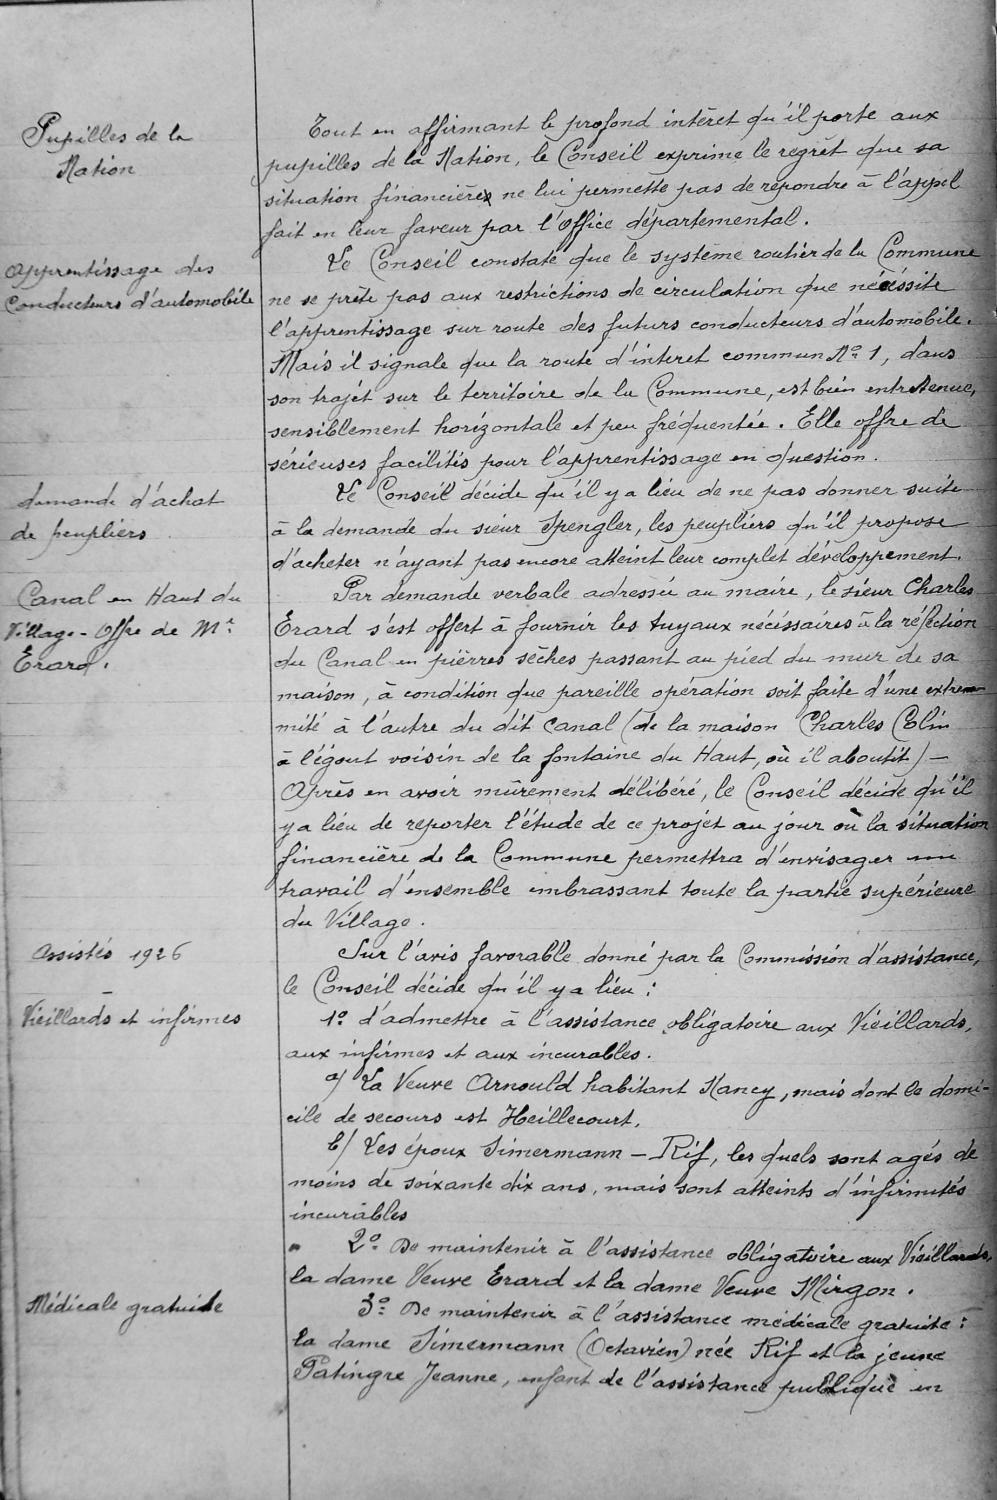 Pupilles de la
Nation
Tout en affirmant le profond intérêt qu'il porte aux
pupilles de la Nation, le Conseil exprime le regrêt que sa
situation financière ne lui permette pas de répondre à l'appel
fait en leur faveur par l'Office départemental.
Apprentissage des
Conducteurs d'automobile
Le Conseil constate que le système routier de la Commune
ne se prête pas aux restrictions de circulation que nécéssite
l'apprentissage sur route des futurs conducteurs d'automobile.
Mais il signale que la route d'intérêt commun No 1, dans
son trajét sur le territoire de la Commune, est bien entretenue,
sensiblement horizontale et peu fréquentée. Elle offre de
sérieuses facilités pour l'apprentissage en question.
demande d'achat
de peupliers
Le Conseil décide qu'il y a lieu de ne pas donner suite
à la demande du sieur Spengler, les peupliers qu'il propose
d'acheter n'ayant pas encore atteint leur complet développement.
Canal en Haut du
Village - Offre de Mr
Erard.
Par demande verbale adressée au maire, le sieur Charles
Erard s'est offert à fournir les tuyaux nécéssaires à la réfection
du Canal en pièrres sèches passant au pied du mur de sa
maison, à condition que pareille opération soit faite d'une extre
mité à l'autre du dit canal (de la maison Charles Colin
à l'égout voisin de la fontaine du Haut, où il aboutit) -
Après en avoir mûrement délibéré, le Conseil décide qu'il
y a lieu de reporter l'étude de ce projet au jour où la situation
financière de la Commune permettra d'envisager un
travail d'ensemble embrassant toute la partie supérieure
du Village.
Assistés 1926
Sur l'avis favorable donné par la Commission d'assistance,
le Conseil décide qu'il y a lieu :
Vieillards et infirmes
1o d'admettre à l'assistance obligatoire aux Vieillards,
aux infirmes et aux incurables.
a) La Veuve Arnould habitant Nancy, mais dont le domi-
cile de secours est Heillecourt.
b) Les époux Simermann - Rif, les quels sont agés de
moins de soixante dix ans, mais sont atteints d'infirmités
incurables
2o De maintenir à l'assistance obligatoire aux Vieillards,
la dame Veuve Erard et la dame Veuve Mirgon.
Médicale gratuite
3o De maintenir à l'assistance médicale gratuite :
la dame Simermann (Octavien) née Rif et la jeune
Patingre Jeanne, enfant de l'assistance publique en